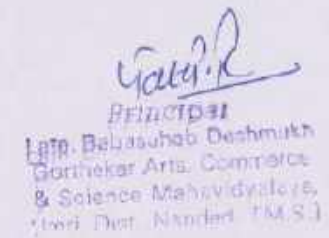 Principal
Late. Babasaheb Deshmukh
Gorthekar Arts, Commerce
& Science Mahavidyalaya,
Umri Dist Nanded (M.S.)